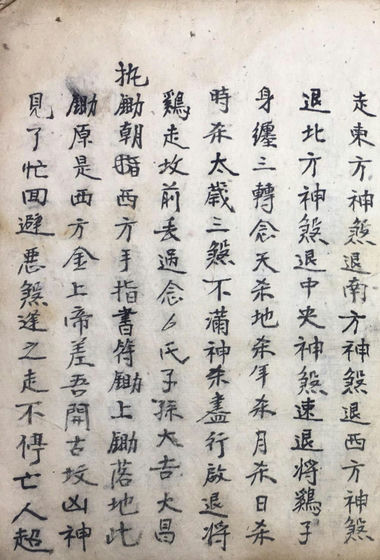 走東方神煞退南方神煞退西方神煞
退北方神煞退中央神煞速退將鷄子
身纏三轉念天杀地杀年杀月杀日杀
時杀太歲三煞不滿神杀盡行啟退將
鷄走坟前丢過念厶氏子孫大吉大昌
执鋤朝西方手指書符鋤上鋤落地此
鋤原是西方金上帝差吾開古坟凶神
見了忙回避悪煞逢之走不停亡人超